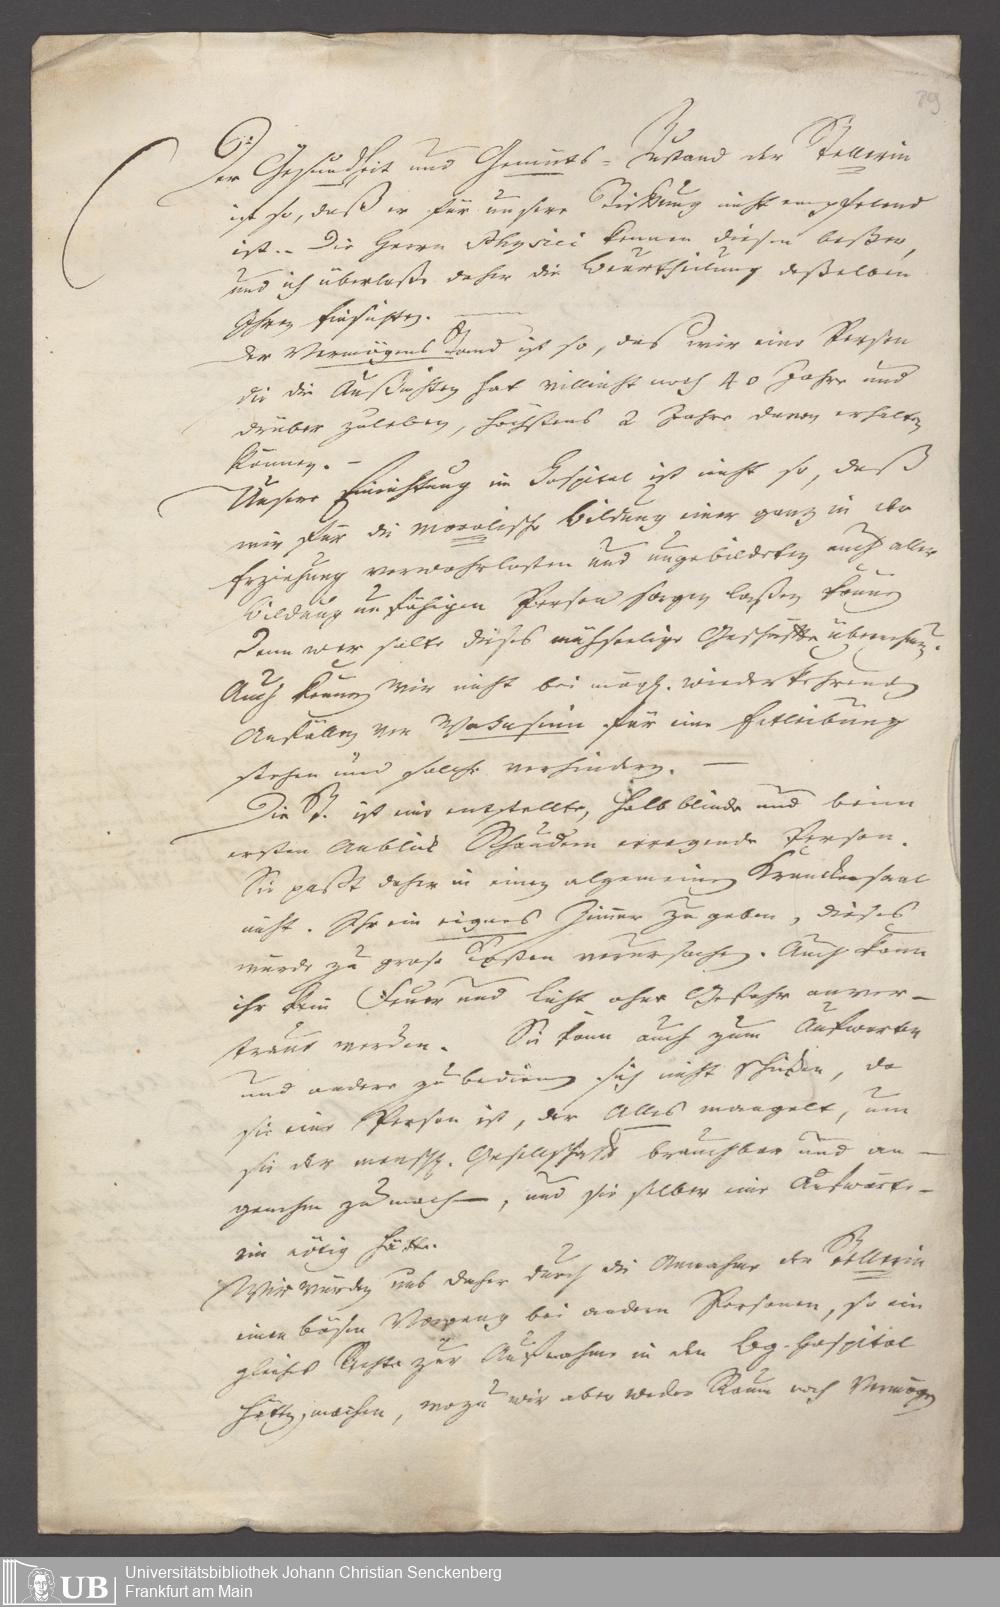 79
Der Gesundheit und Gemüts=Zustand der Stellerin
ist so, daß er für unsere Stiftung nicht empfelend
ist.. Die Herrn Physici kennen diesen beßer,
und ich überlaße daher die Beurtheilung deßelben
Ihren Einsichten. —
Der Vermögens Stand ist so, das wir eine Person
die die Außichten hat villeicht noch 40 Jahre und
drüber zuleben, höchstens 2 Jahre davon erhalten
können. —
Unsere Einrichtung im Hospital ist nicht so, daß
wir für die moralische Bildung einer ganz in der
Erziehung verwahrlosten und ungebildeten auch aller
Bildung unfähigen Person sorgen laßen können
Denn wer solte dieses mühseelige Geschäfte übernehmen.
Auch können wir nicht bei mögl. wiederkehrenden
Anfällen von Wahnsinn für eine Entleibung
stehen und solche verhindern. —
Die St. ist eine entstellte, halbblinde und beim
ersten Anblick Schaudern erregende Person.
Sie paßt daher in einen algemeinen Kranckensaal
nicht. Ihr ein eignes Zimmer zu geben, dieses
würde zu grose Kosten verursachen. Auch kann
ihr kein Feuer und Licht ohne Gefahr anver-
traut werden. Sie kann auch zum Aufwarten
und andere zu bedienen sich nicht schicken, da
sie eine Person ist, der Alles mangelt, um
sie der menschl. Gesellschaft brauchbar und an-
genehm zu machen, und sie selber eine Aufwärte-
rin nötig hätte.
Wir würden uns daher durch die Annahme der Stellerin
einen bösen Vorgang bei andern Personen, so ein
gleiches Recht zur Aufnahme in den Bg. Hospital
hätten, machen, wozu wir aber weder Raum noch Vermögen
UB
Universitätsbibliothek Johann Christian Senckenberg
Frankfurt am Main